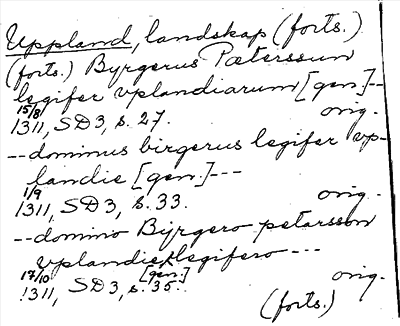 Uppland, landskap (forts.)
(forts.) Byrgerus Pæterssun
legifer vplandiarum [gen.]--
15/8
1311, SD3, s. 27. orig.
--dominus birgerus legifer vp-
landie [gen.]---
1/9
1311, SD3, s. 33. orig.
--domino Byrgero petarsson
vplandie legifero ---
[gen.]
17/10
1311, SD3, s. 35. orig.
(forts.)